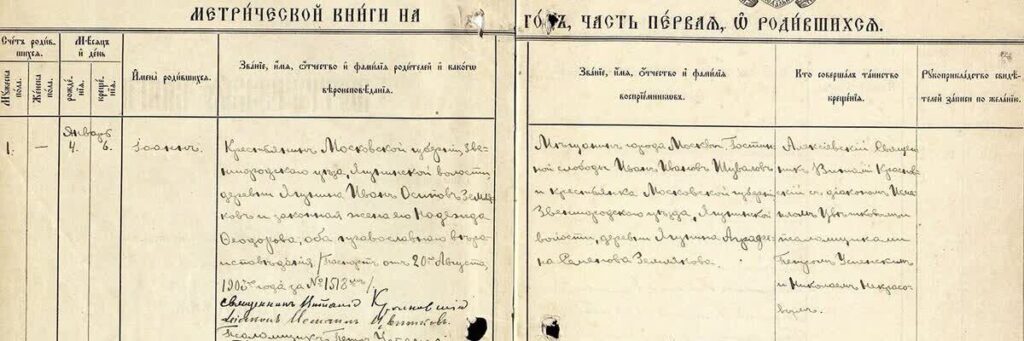 МЕТРИ́ЧЕСКОЙ КНИ́ГИ НА ГО́ДЪ, ЧАСТЬ ПЕ́РВАЯ, Ѡ РОДИ́ВШИХСѦ.
Счетъ роди́в-
шихсѧ.
Мꙋжеска
пола.
Же́нска
пола.
Мѣсѧцъ
и́ де́нь
рожде́-
нїѧ.
креще́-
нїѧ.
И҆мена̀ роди́вшихсѧ.
Зва́нїе, и҆́мѧ, ѻ҆́тчество и҆ фами́лїѧ роди́телей и҆ како́гѡ
вѣроисповѣ́данїѧ.
Зва́нїе, и҆́мѧ, ѻ҆́тчество и҆ фами́лїѧ
воспрїе́мниковъ.
Кто̀ соверша́лъ та́инство
креще́нїѧ.
Рꙋкоприкла́дство свидѣ́-
телей за́писи по жела́нїю.
Январь
1. — 4. 6.
Іоаннъ.
Крестьянинъ Московской губерніи, Зве-
нигородскаго уѣзда, Ягунинской волости,
деревни Ягунина Иванъ Осиповъ Земля-
ковъ и законная жена его Надежда
Ѳеодорова, оба православнаго вѣро-
исповѣданія. /Паспортъ отъ 20го Августа,
года за № 1518
Священникъ Виталій
Діаконъ Цвѣтковъ.
Псаломщикъ Петръ
Мѣщанинъ города Москвы, Гостин
слободы Иванъ Ивановъ Шуваловъ
и крестьянка Московской губерніи
Звенигородскаго уѣзда, Ягунинской
волости, деревни Ягунина Аграфе-
на Семенова Землякова.
Священ-
никъ Виталій
скій съ діакономъ
Цвѣтковымъ и
псаломщиками
Петромъ Успенскимъ
и Николаемъ Некрасо-
вымъ.